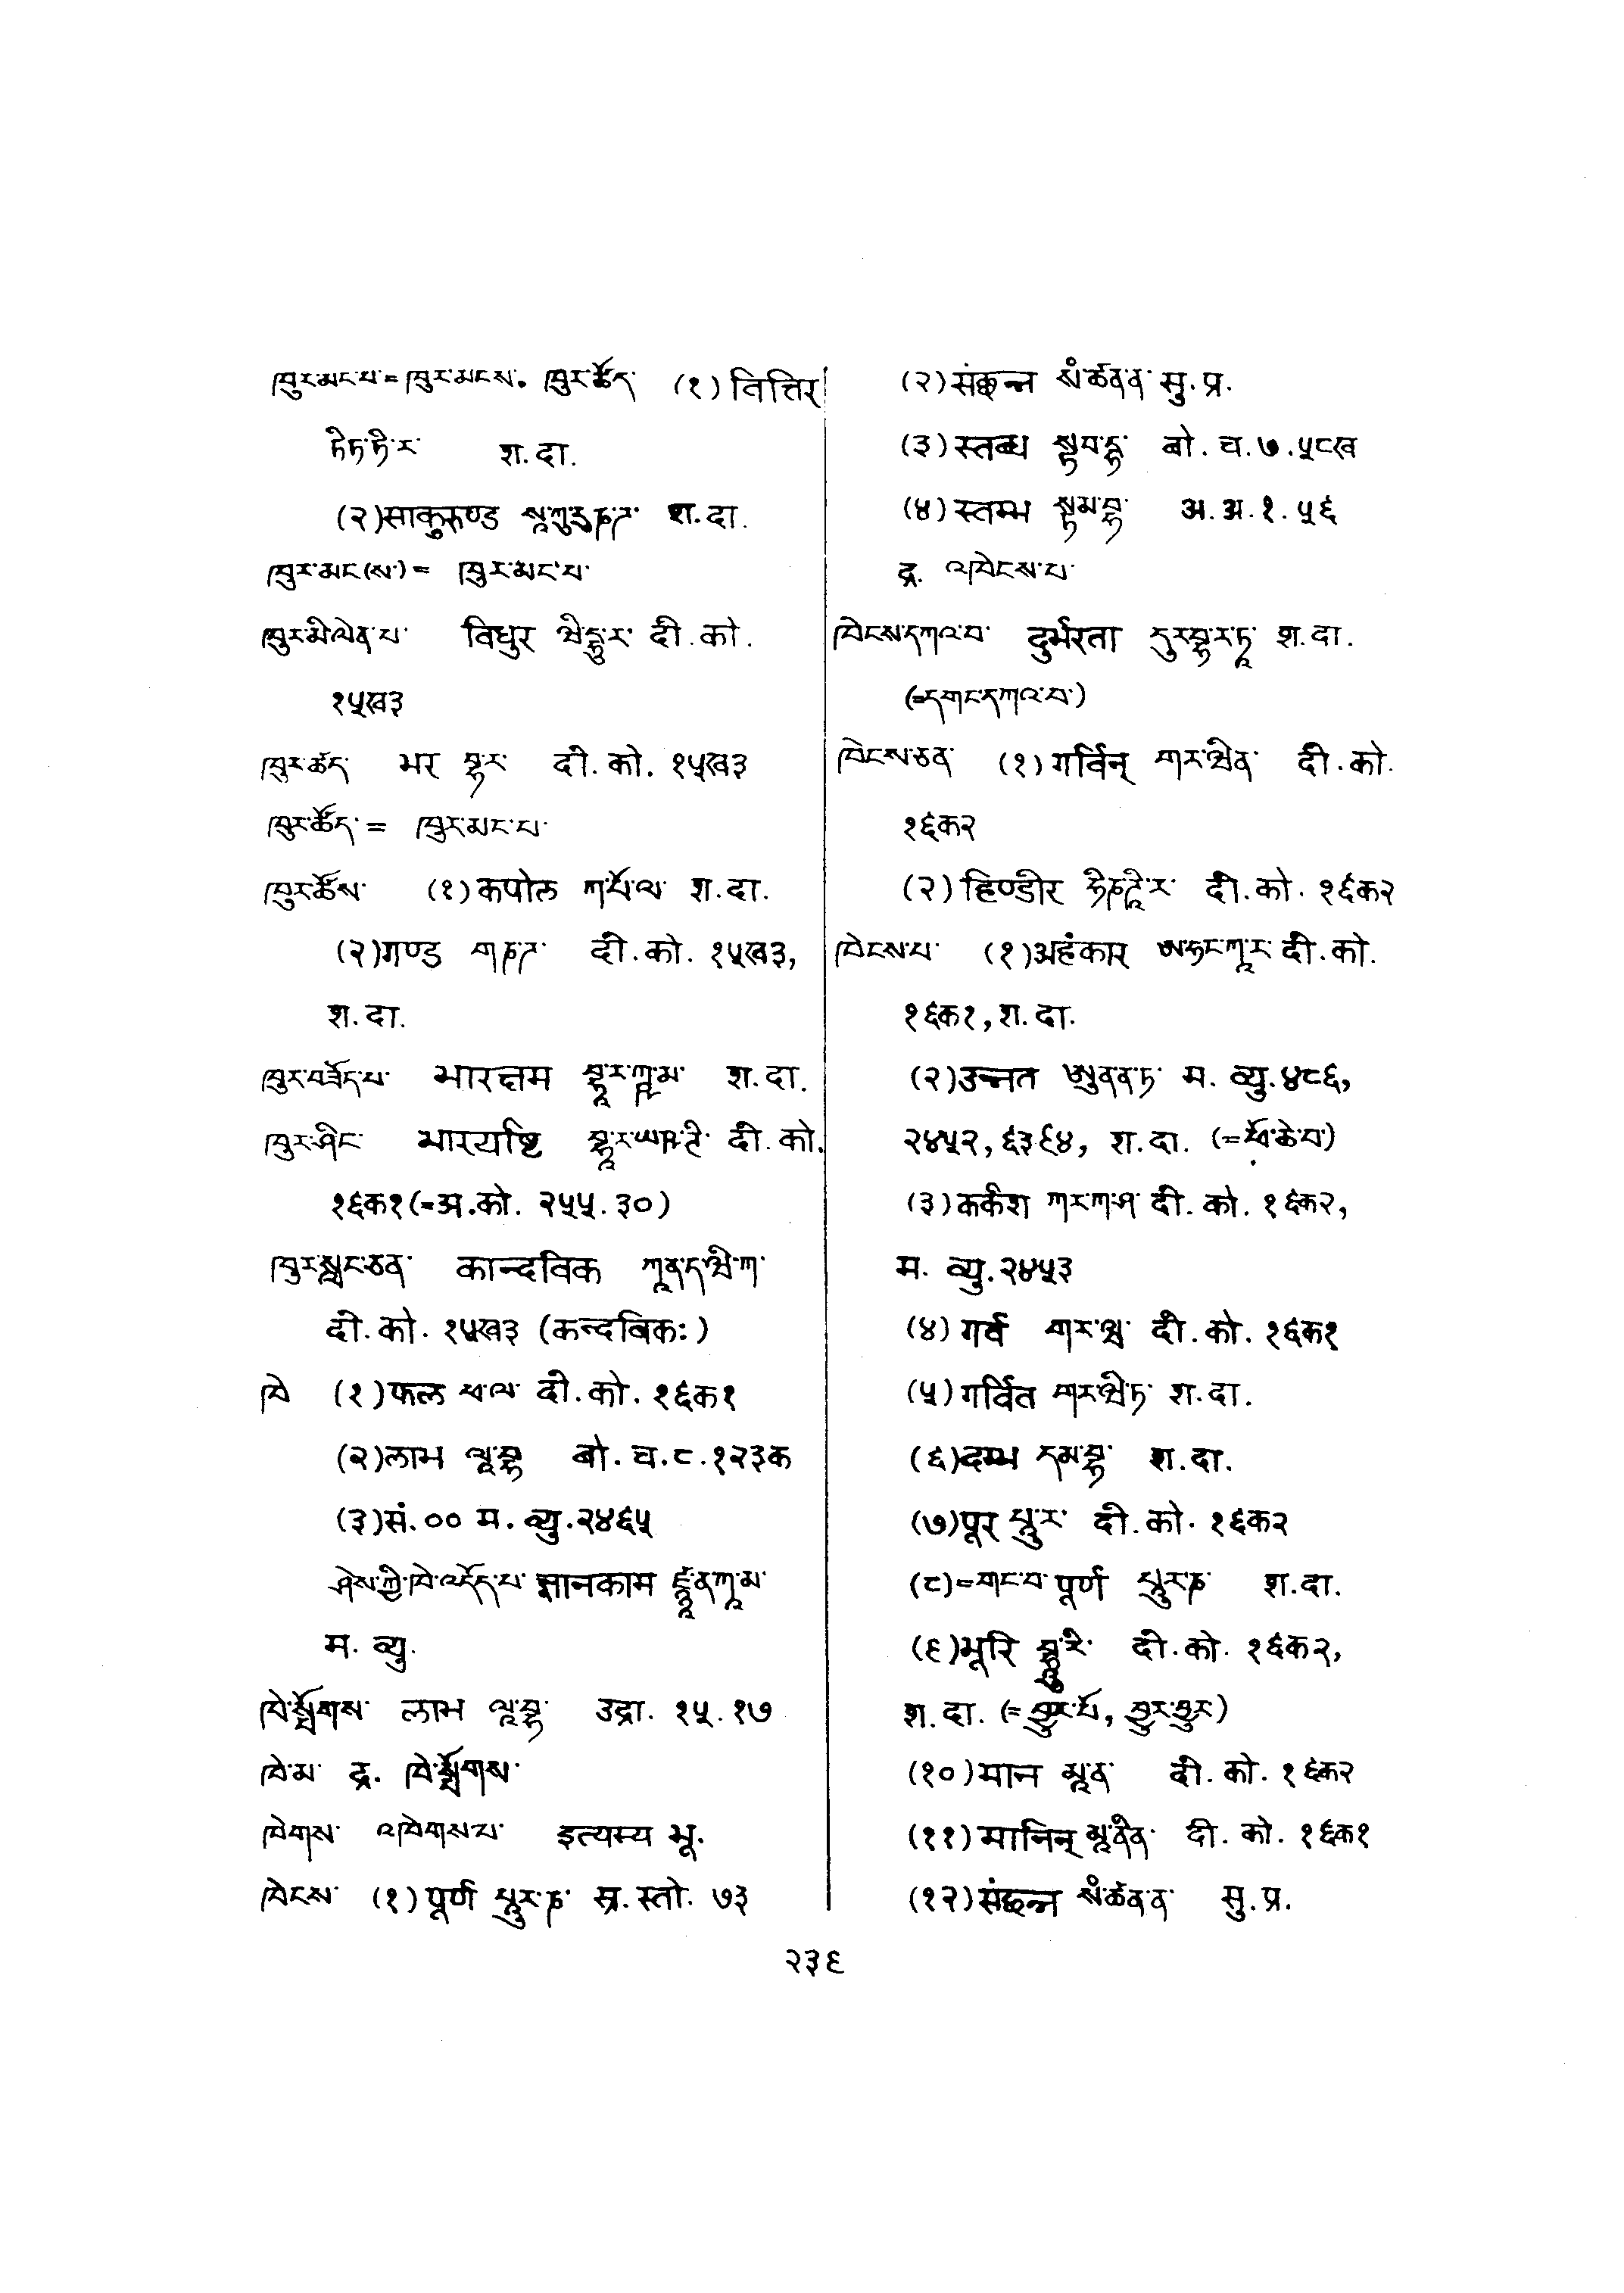 ཁུར་མང་པ་ = ཁུར་མངས. ཁུར་ཚོད་ (१) तित्तिर
ཏིཏ་ཏི་ར་ श.दा.
(२)साकुरुण्ड སཱ་ཀུ་རུཎ་ཌ་ श.दा.
ཁུར་མང(ས་) = ཁུར་མང་པ་
ཁུར་མི་ལེན་པ་ विधुर ཝི་དྷུ་ར་ दी.को.
१५ख३
ཁུར་ཚད་ भर བྷ་ར་ दी.को. १५ख३
ཁུར་ཚོད་ = ཁུར་མང་པ་
ཁུར་ཚོས་ (१)कपोल ཀ་པོ་ལ་ श.दा.
(२)गण्ड གཎ་ཌ་ दी.को. १५ख३,
श.दा.
ཁུར་བཟོད་པ་ भारक्षम བྷཱ་ར་ཀྵ་མ་ श.दा.
ཁུར་ཤིང་ भारयष्टि བྷཱ་ར་ཡཥ་ཊི་ दी.को.
१६क१(=अ.को. २५५.३०)
ཁུར་སླང་ཅན་ कान्दविक ཀཱན་ད་ཝི་ཀ་
दी.को. १५ख३ (कन्दविकः)
ཁེ (१)फल ཕ་ལ་ दी.को. १६क१
(२)लाभ ལཱ་བྷ बो.च.८.१२३क
(३)सं.०० म.व्यु.२४६५
ཤེས་ཀྱི་ཁེ་འདོད་པ་ ज्ञानकाम ཛྙཱན་ཀཱ་མ་
म. व्यु.
ཁེ་སྤོགས་ लाभ ལཱ་བྷ་ उद्रा. १५.१७
ཁེ་མ་ द्र. ཁེ་སྤོགས་
ཁེགས་ འཁེགས་པ་ इत्यस्य भू.
ཁེངས་ (१)पूर्ण པཱུར་ཎ་ स्र.स्तो. ७३
(२)संछन्न སཾ་ཚནན་ सु.प्र.
(३)स्तब्ध སྟབ་དྷ་ बो.च.७.५८ख
(४)स्तम्भ སྟམ་བྷ་ अ.अ.१.५६
द्र. འཁེངས་པ་
ཁེངས་དཀའ་བ་ दुर्भरता དུར་བྷ་ར་ཏཱ་ श.दा.
(=དགང་དཀའ་བ་)
ཁེངས་ཅན་ (१)गर्विन् གར་ཝིན་ दी.को.
१६क२
(२)हिण्डीर ཧིཎ་ཌཱི་ར་ दी.को. १६क२
ཁེངས་པ་ (१)अहंकार ཨ་ཧང་ཀཱ་ར दी.को.
१६क१,श.दा.
(२)उन्नत ཨུནན་ཏ་ म. व्यु.४८६,
२४५२,६३९४, श.दा. (=ཕོ་ཆེ་བ་)
(३)कर्कश ཀར་ཀ་ཤ་ दी.को. १६क२,
म. व्यु.२४५३
(४) गर्व གར་ཝ་ दी.को. १६क१
(५)गर्वित གར་ཝི་ཏ་ श.दा.
(६)दम्भ དམ་བྷ་ श.दा.
(७)पूर པཱུ་ར་ दी.को. १६क२
(८)=གང་བ་ पूर्ण པཱུར་ཎ श.दा.
(९)भूरि བྷཱུ་རི་ दी.को. १६क२,
श.दा.
(१०)मान མཱ་ན་ दी.को. १६क२
(११)मानिन् མཱ་ནིན་ दी.को. १६क१
(१२)संछन्न སཾ་ཚནན་ सु.प्र.
२३९